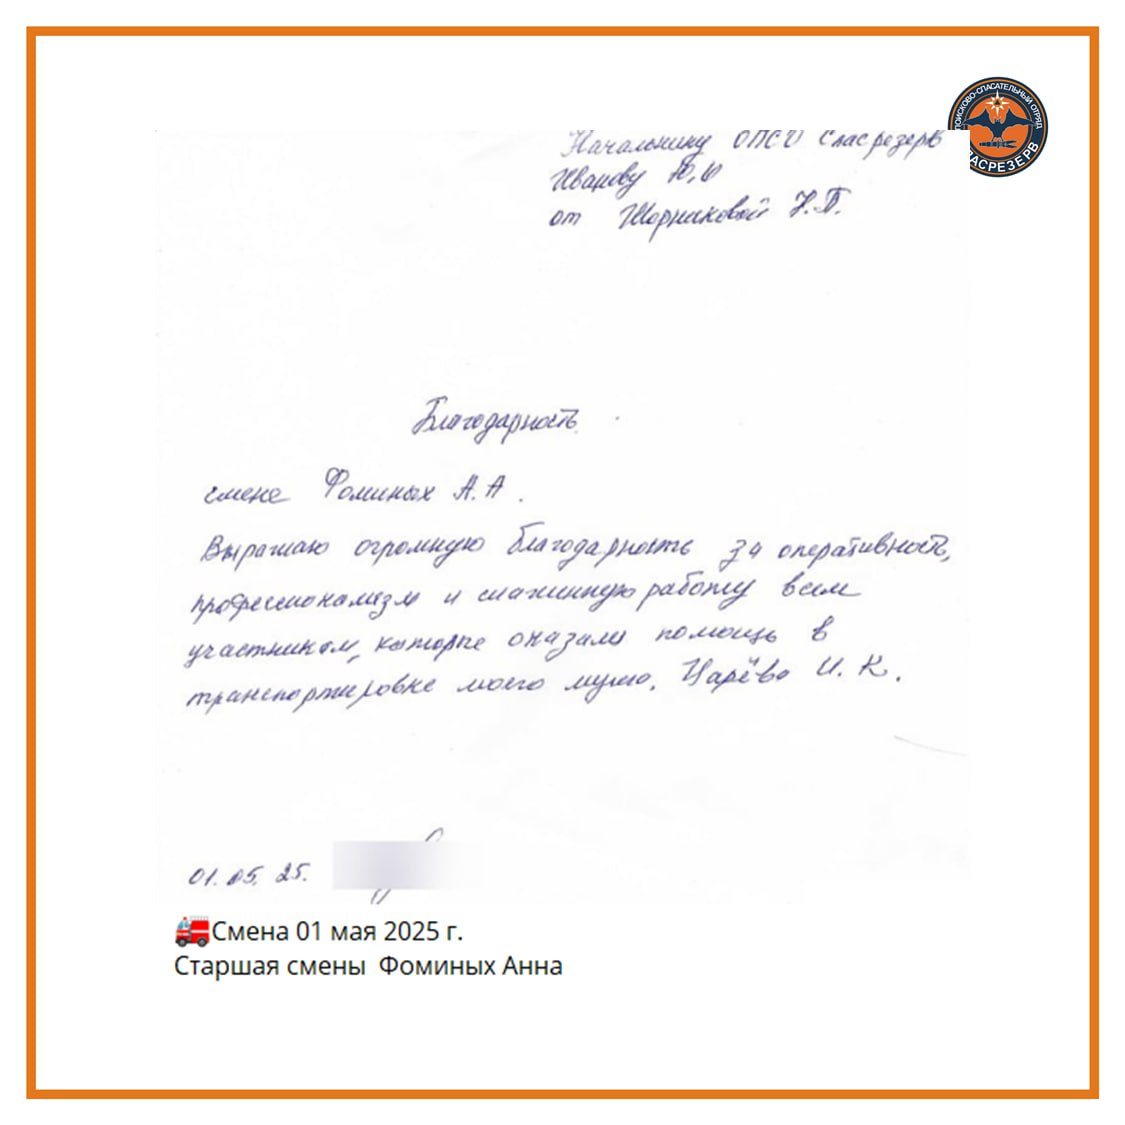 ПОИСКОВО-СПАСАТЕЛЬНЫЙ ОТРЯД
СПАСРЕЗЕРВ
Начальнику ОПСО Спасрезерв
Иванову Ю.И
от Шорниковой Н.П.
Благодарность
смене Фоминых А.А.
Выражаю огромную благодарность за оперативность,
профессионализм и слаженную работу всем
участникам, которые оказали помощь в
транспортировке моего мужа, Царёва И. К.
01.05.25.
🚒Смена 01 мая 2025 г.
Старшая смены Фоминых Анна